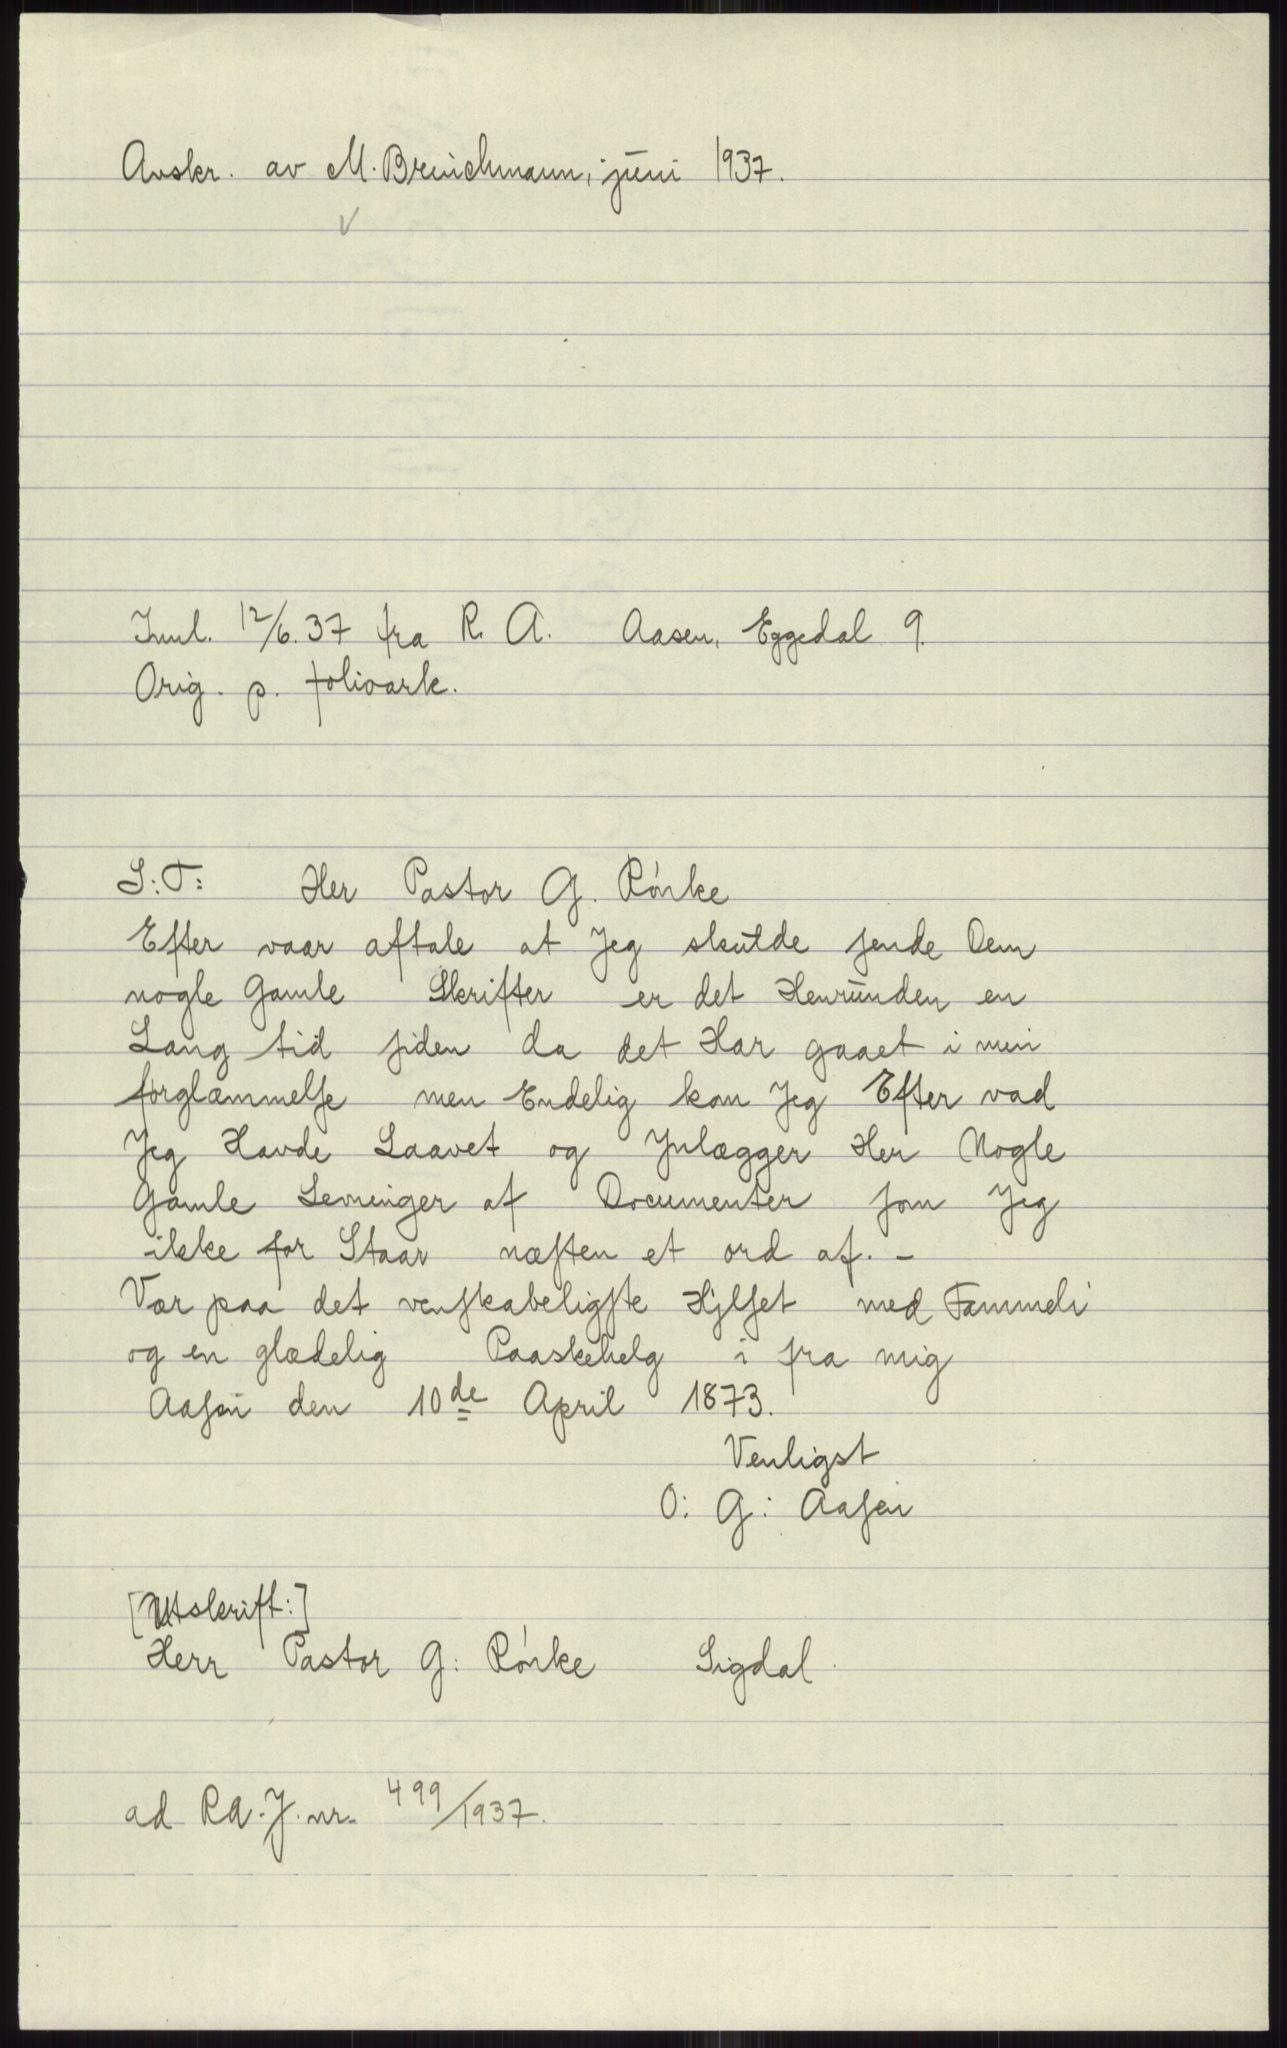 Avskr. av M. Brinchmann, juni 1937.
Innl. 12/6. 37 fra R. A. Aasen, Eggedal 9.
Orig. p. folioark.
S: T: Her Pastor G. Rönke
Efter vaar aftale at Jeg skulde sende Dem
nogle Gamle Skrifter er det Henrunden en
Lang tid siden da det Har gaaet i min
forglæmmelse men Endelig kom Jeg Efter vad
Jeg Havde Laavet og Inlægger Her Nogle
Gamle Levninger af Documenter som Jeg
ikke for Staar næsten et ord af. -
Vær paa det venskabeligste Hjlset med Fammeli
og en glædelig Paaskehelg i fra mig
Aasen den 10de April 1873.
Venligst
O: G: Aasen
[Utskrift:]
Herr Pastor G: Rönke Sigdal.
ad RA. J. nr. 499/1937.